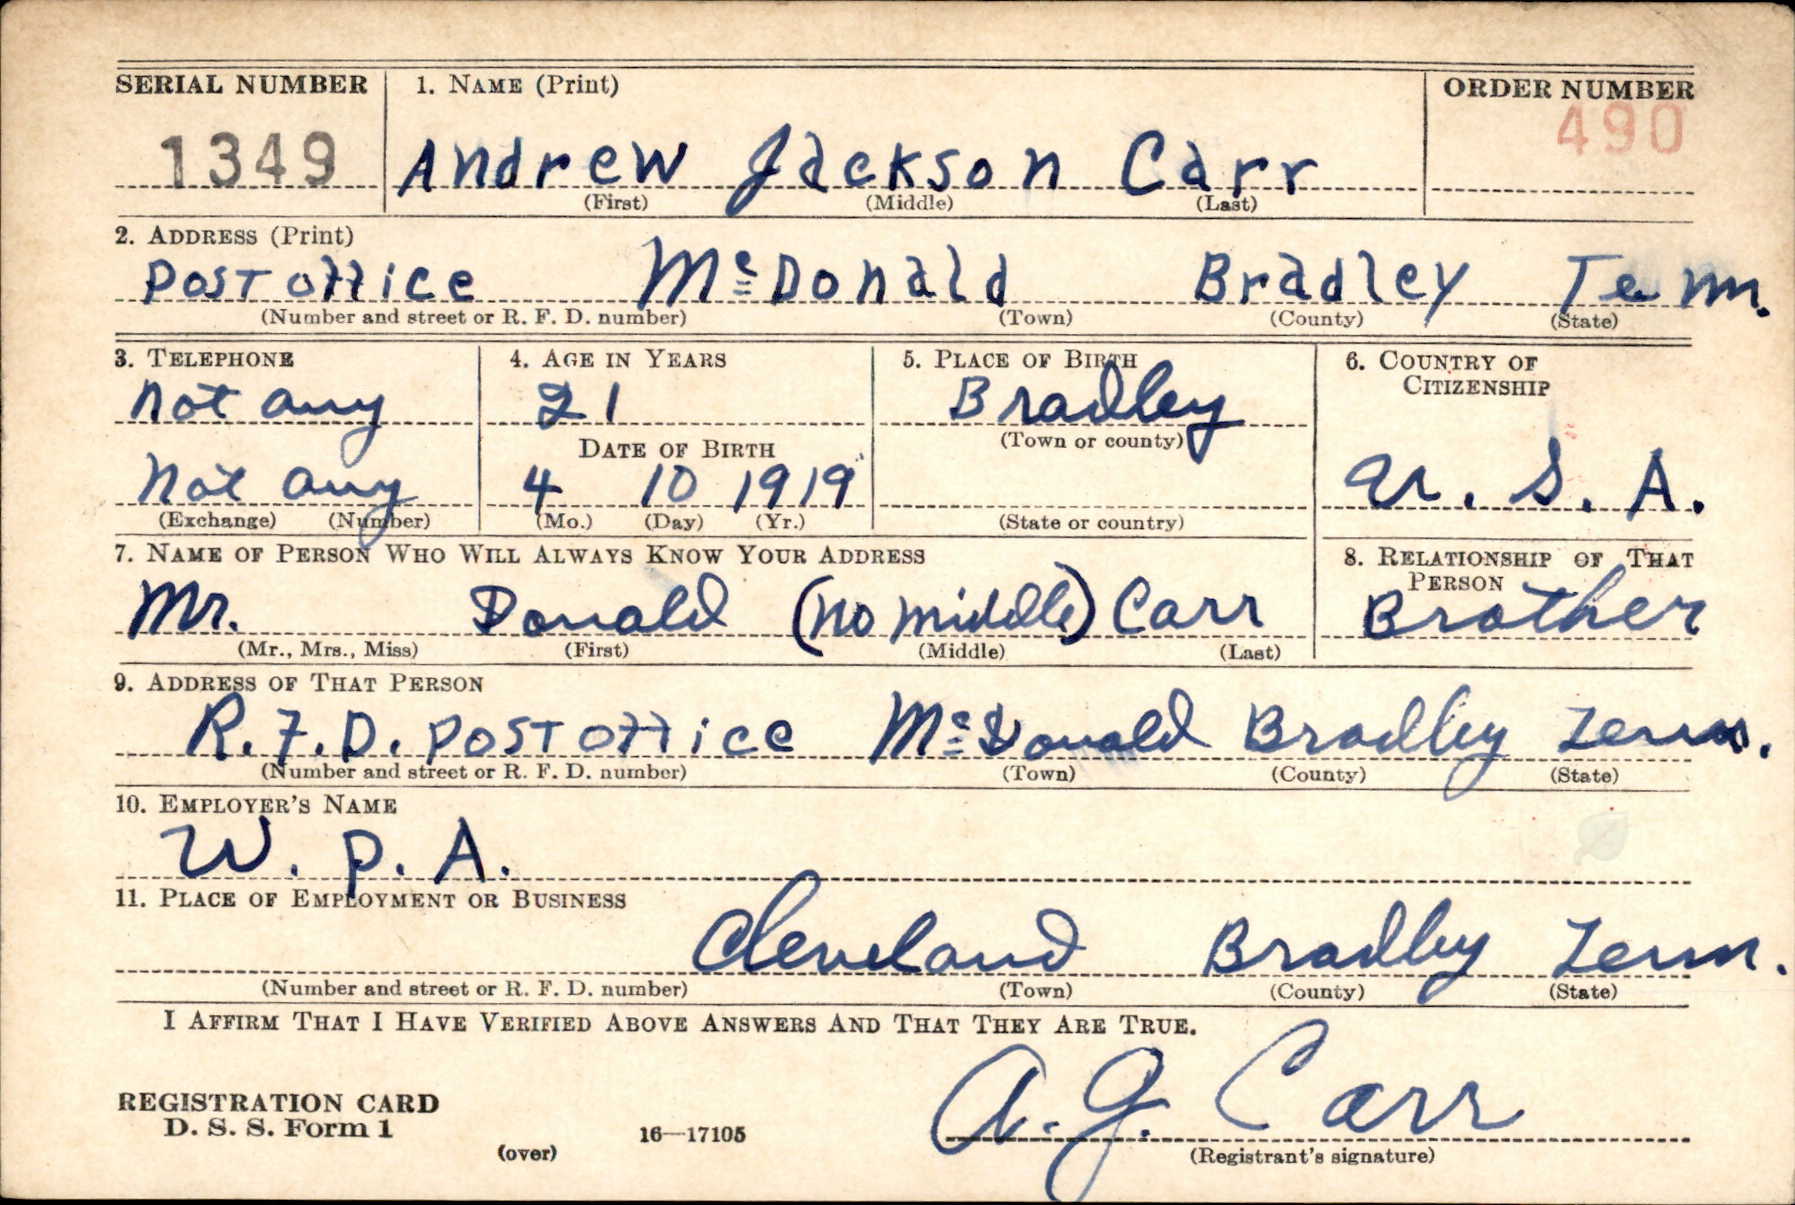 SERIAL NUMBER 1. NAME (Print) ORDER NUMBER
1349 Andrew Jackson Carr 490
(First) (Middle) (Last)
2. ADDRESS (Print)
Post office McDonald Bradley Tenn.
(Number and street or R. F. D. number) (Town) (County) (State)
3. TELEPHONE 4. AGE IN YEARS 5. PLACE OF BIRTH 6. COUNTRY OF CITIZENSHIP
not any 21 Bradley
DATE OF BIRTH (Town or county)
not any 4 10 1919 U. S. A.
(Exchange) (Number) (Mo.) (Day) (Yr.) (State or country)
7. NAME OF PERSON WHO WILL ALWAYS KNOW YOUR ADDRESS 8. RELATIONSHIP OF THAT PERSON
Mr. Donald (no middle) Carr Brother
(Mr., Mrs., Miss) (First) (Middle) (Last)
9. ADDRESS OF THAT PERSON
R.F.D. Post office McDonald Bradley Tenn.
(Number and street or R. F. D. number) (Town) (County) (State)
10. EMPLOYER'S NAME
W. P. A.
11. PLACE OF EMPLOYMENT OR BUSINESS
Cleveland Bradley Tenn.
(Number and street or R. F. D. number) (Town) (County) (State)
I AFFIRM THAT I HAVE VERIFIED ABOVE ANSWERS AND THAT THEY ARE TRUE.
A. J. Carr
REGISTRATION CARD
D. S. S. Form 1 16—17105
(over) (Registrant's signature)